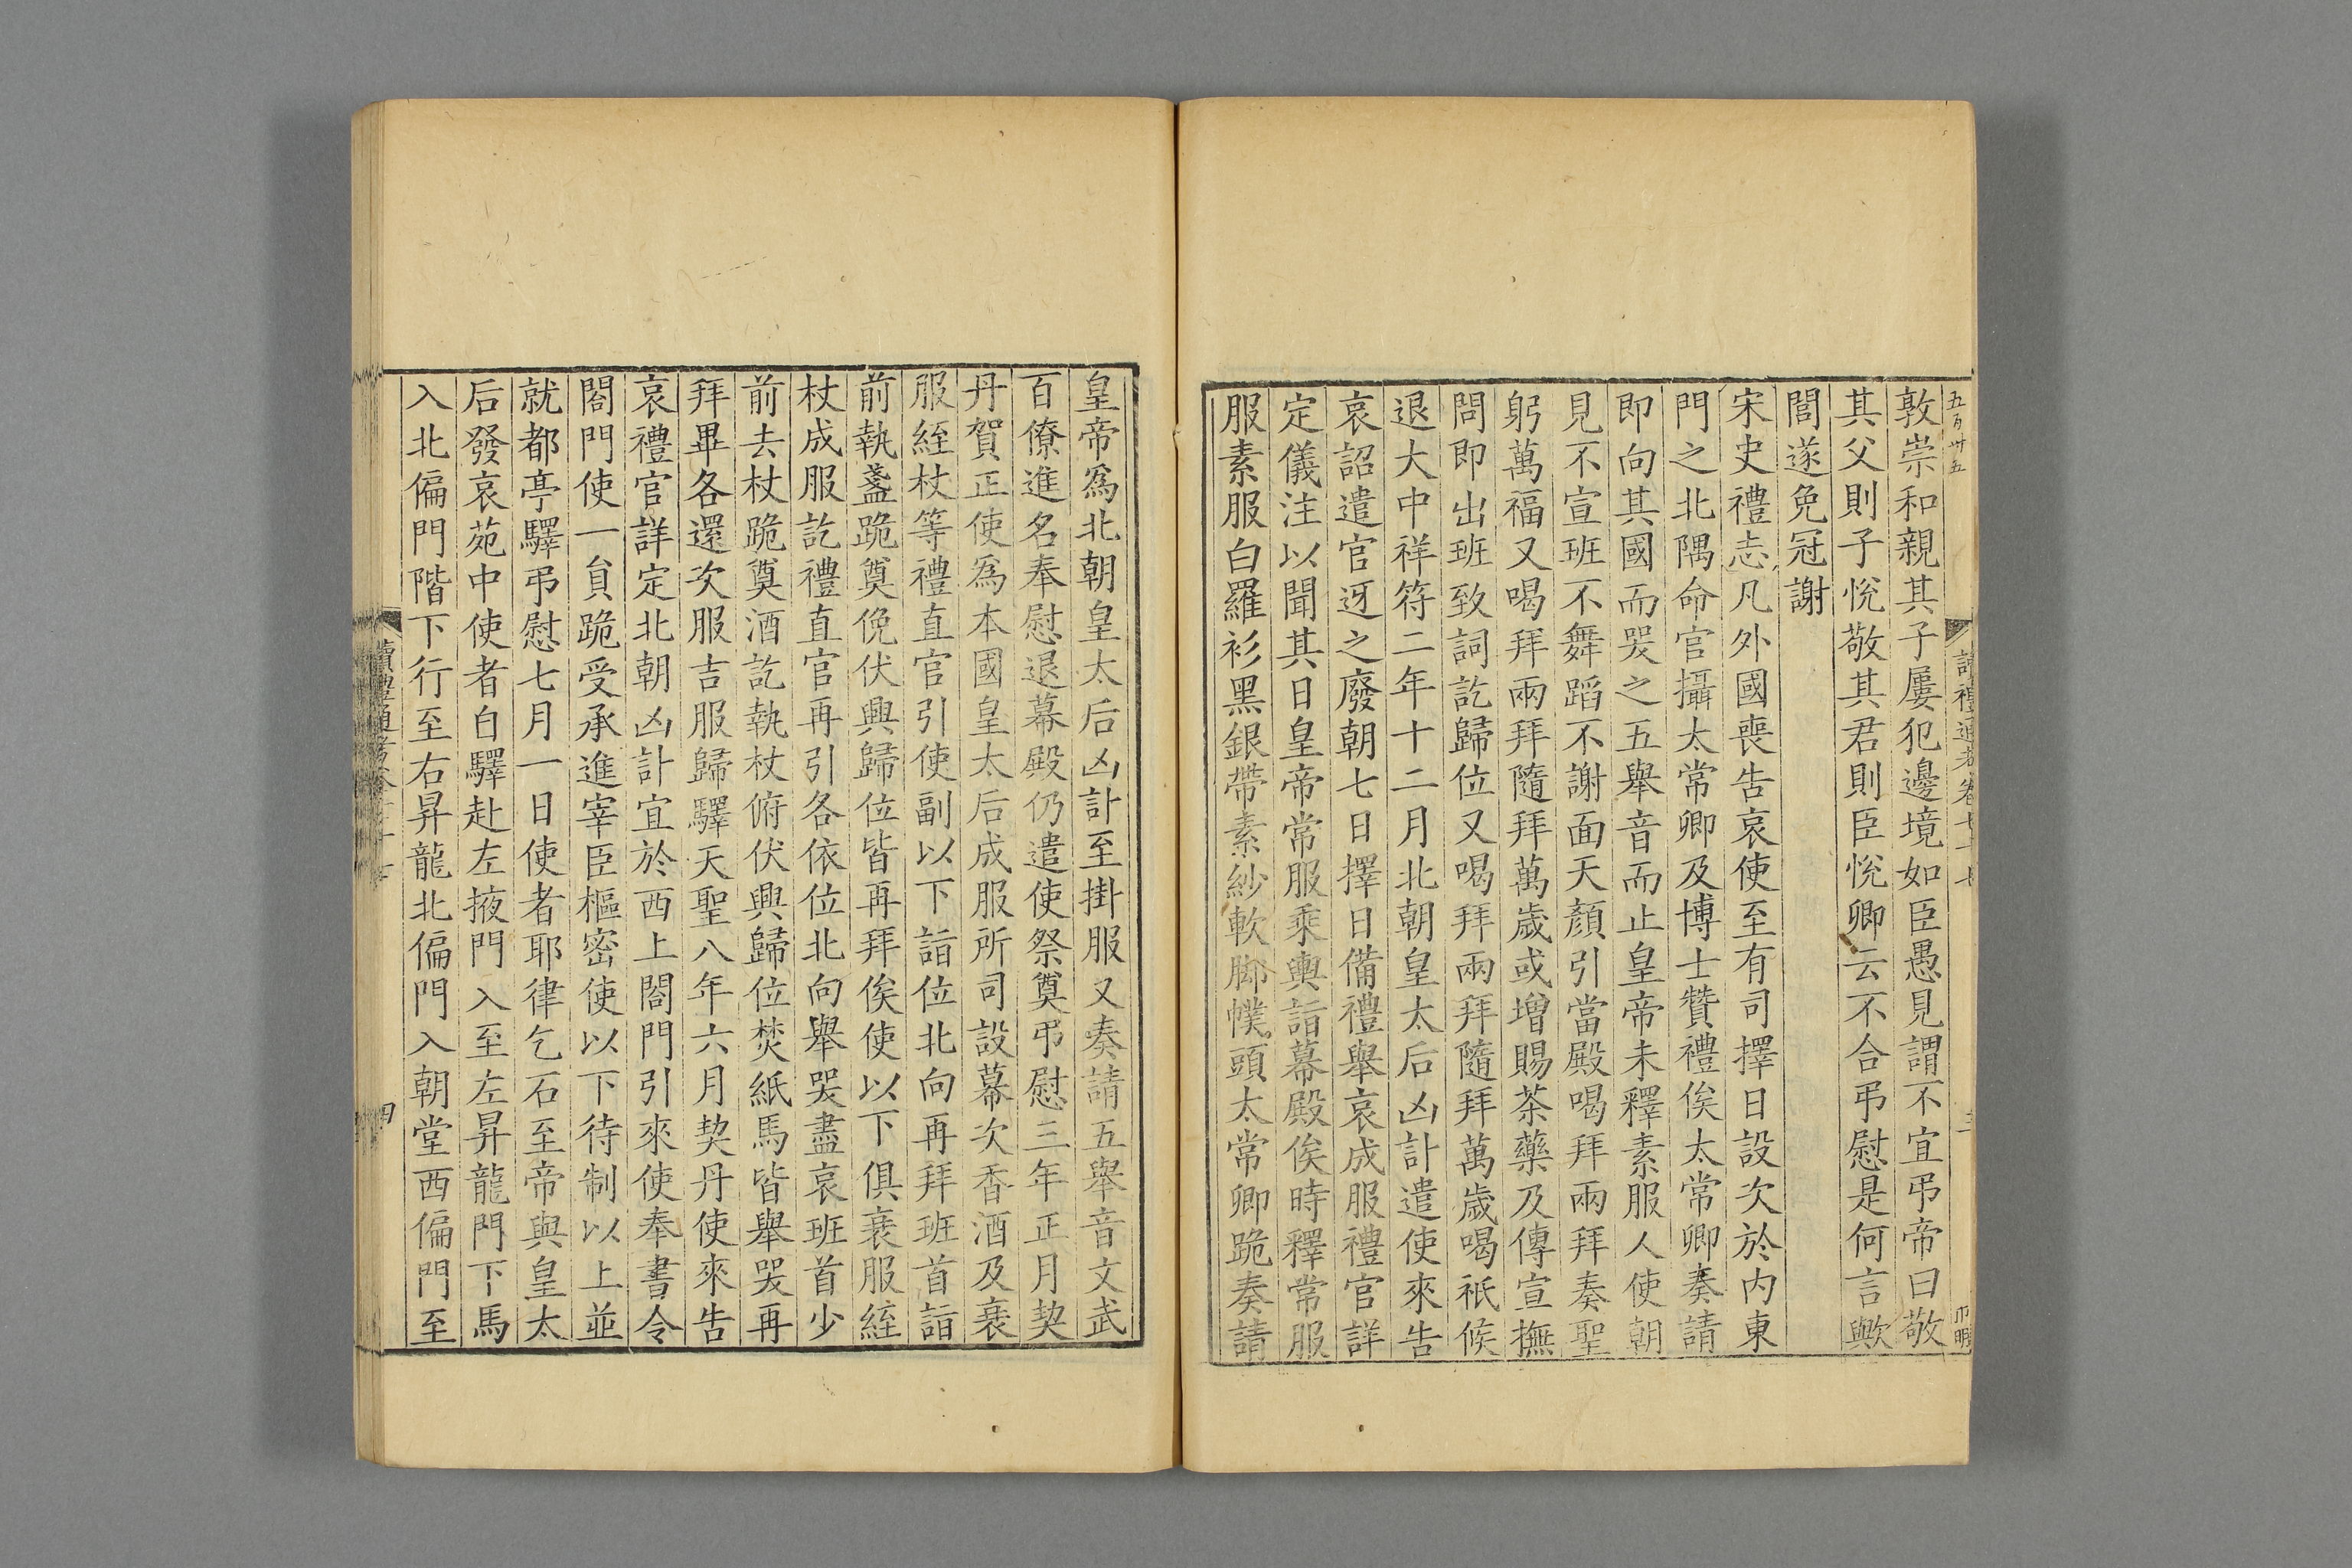 五百卅五
讀禮通考卷七十七
三
敦崇和親其子屢犯邊境如臣愚見謂不宜弔帝曰敬
其父則子悅敬其君則臣悅卿云不合弔慰是何言歟
誾遂免冠謝
宋史禮志凡外國喪告哀使至有司擇日設次於内東
門之北隅命官攝太常卿及博士贊禮俟太常卿奏請
即向其國而哭之五舉音而止皇帝未釋素服人使朝
見不宣班不舞蹈不謝面天顏引當殿喝拜兩拜奏聖
躬萬福又喝拜兩拜隨拜萬歲或增賜茶藥及傳宣撫
問即出班致詞訖歸位又喝拜兩拜隨拜萬歲喝祇候
退大中祥符二年十二月北朝皇太后凶訃遣使來告
哀詔遣官迓之廢朝七日擇日備禮舉哀成服禮官詳
定儀注以聞其日皇帝常服乘輿詣幕殿俟時釋常服
服素服白羅衫黑銀帶素紗軟脚幞頭太常卿跪奏請
皇帝爲北朝皇太后凶訃至掛服又奏請五舉音文武
百僚進名奉慰退幕殿仍遣使祭奠弔慰三年正月契
丹賀正使爲本國皇太后成服所司設幕次香酒及衰
服絰杖等禮直官引使副以下詣位北向再拜班首詣
前執盞跪奠俛伏興歸位皆再拜俟使以下俱衰服絰
杖成服訖禮直官再引各依位北向舉哭盡哀班首少
前去杖跪奠酒訖執杖俯伏興歸位焚紙馬皆舉哭再
拜畢各還次服吉服歸驛天聖八年六月契丹使來告
哀禮官詳定北朝凶訃宜於西上閤門引來使奉書令
閤門使一員跪受承進宰臣樞密使以下待制以上並
就都亭驛弔慰七月一日使者耶律乞石至帝與皇太
后發哀苑中使者自驛赴左掖門入至左昇龍門下馬
入北偏門階下行至右昇龍北偏門入朝堂西偏門至
讀禮通考卷七十七
四